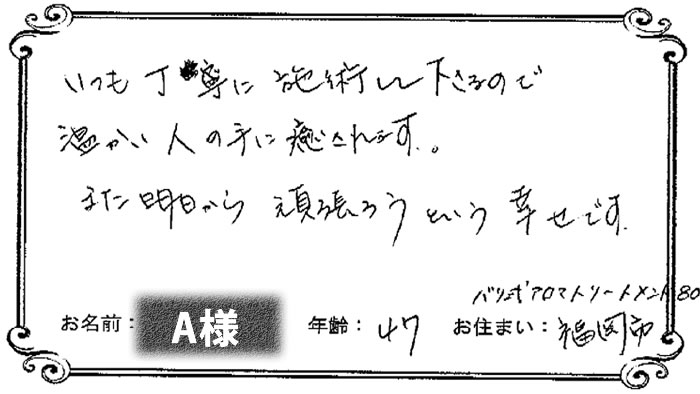 いつも丁寧に施術して下さるので
温かい人の手に癒されます。
また明日から頑張ろうという幸せです。
バリ式アロマトリートメント80
お名前：A様 年齢：47 お住まい：福岡市